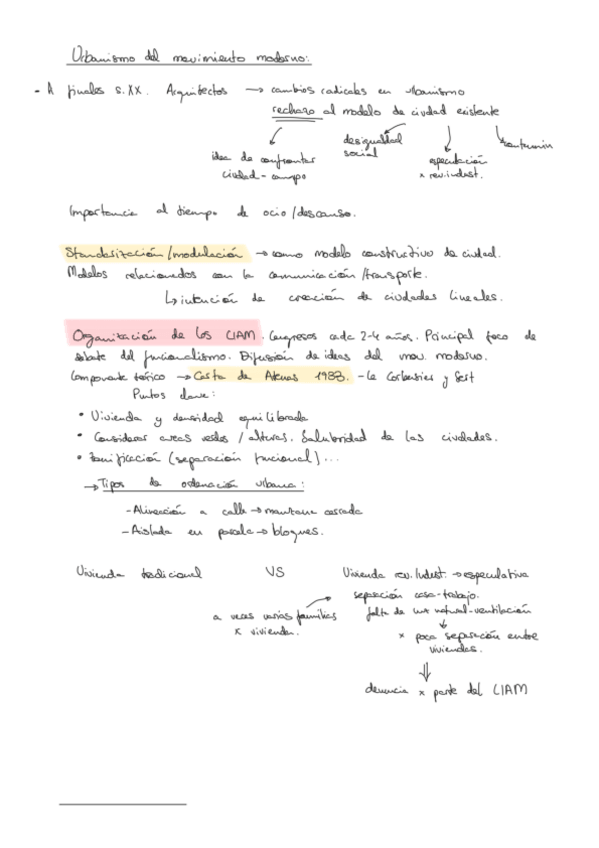 Urbanismo del movimiento moderno:
- A finales s.XX. Arquitectos → cambios radicales en urbanismo
rechazo al modelo de ciudad existente
idea de confrontar
ciudad-campo
desigualdad
social
especulación
x rev.indust.
Importancia al tiempo de ocio/descanso.
Standarización/modulación → como modelo constructivo de ciudad.
Modelos relacionados con la comunicación/transporte.
↳ intención de creación de ciudades lineales.
Organización de los CIAM. Congresos cada 2-4 años. Principal foco de
debate del funcionalismo. Difusión de ideas del mov. moderno.
Componente teórico → Carta de Atenas 1933. - Le Corbusier y Sert
Puntos clave:
• Vivienda y densidad equilibrada
• Considerar areas verdes / alturas. Salubridad de las ciudades.
• Zonificación (separación funcional)...
→ Tipos de ordenación urbana:
- Alineación a calle → manzana cerrada
- Aislada en parcela → bloques.
Vivienda tradicional VS Vivienda rev. Indust. → especulativa
separación casa-trabajo.
a veces varias familias
x vivienda.
falta de luz natural-ventilación
x poca separación entre
viviendas.
denuncia x parte del CIAM